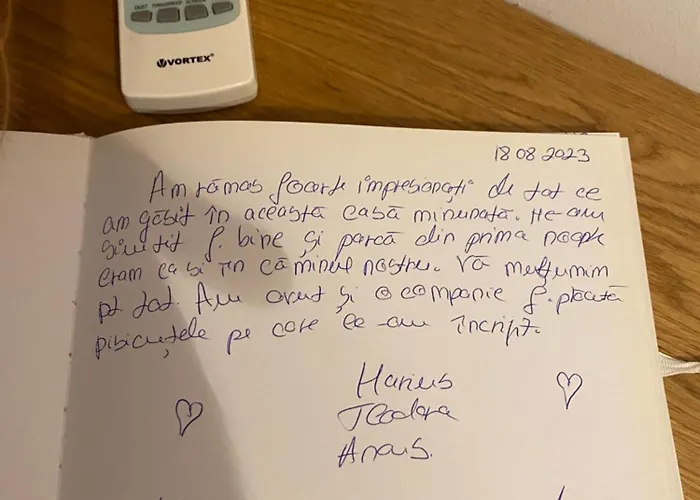 VORTEX
18 08 2023
Am rămas foarte impresionați de tot ce
am găsit în această casă minunată. Ne-am
simțit f. bine și parcă din prima noapte
eram ca și în căminul nostru. Vă mulțumim
pt tot. Am avut și o companie f. plăcută
pisicuțele pe care le-am
Marius
Teodora
Anais.